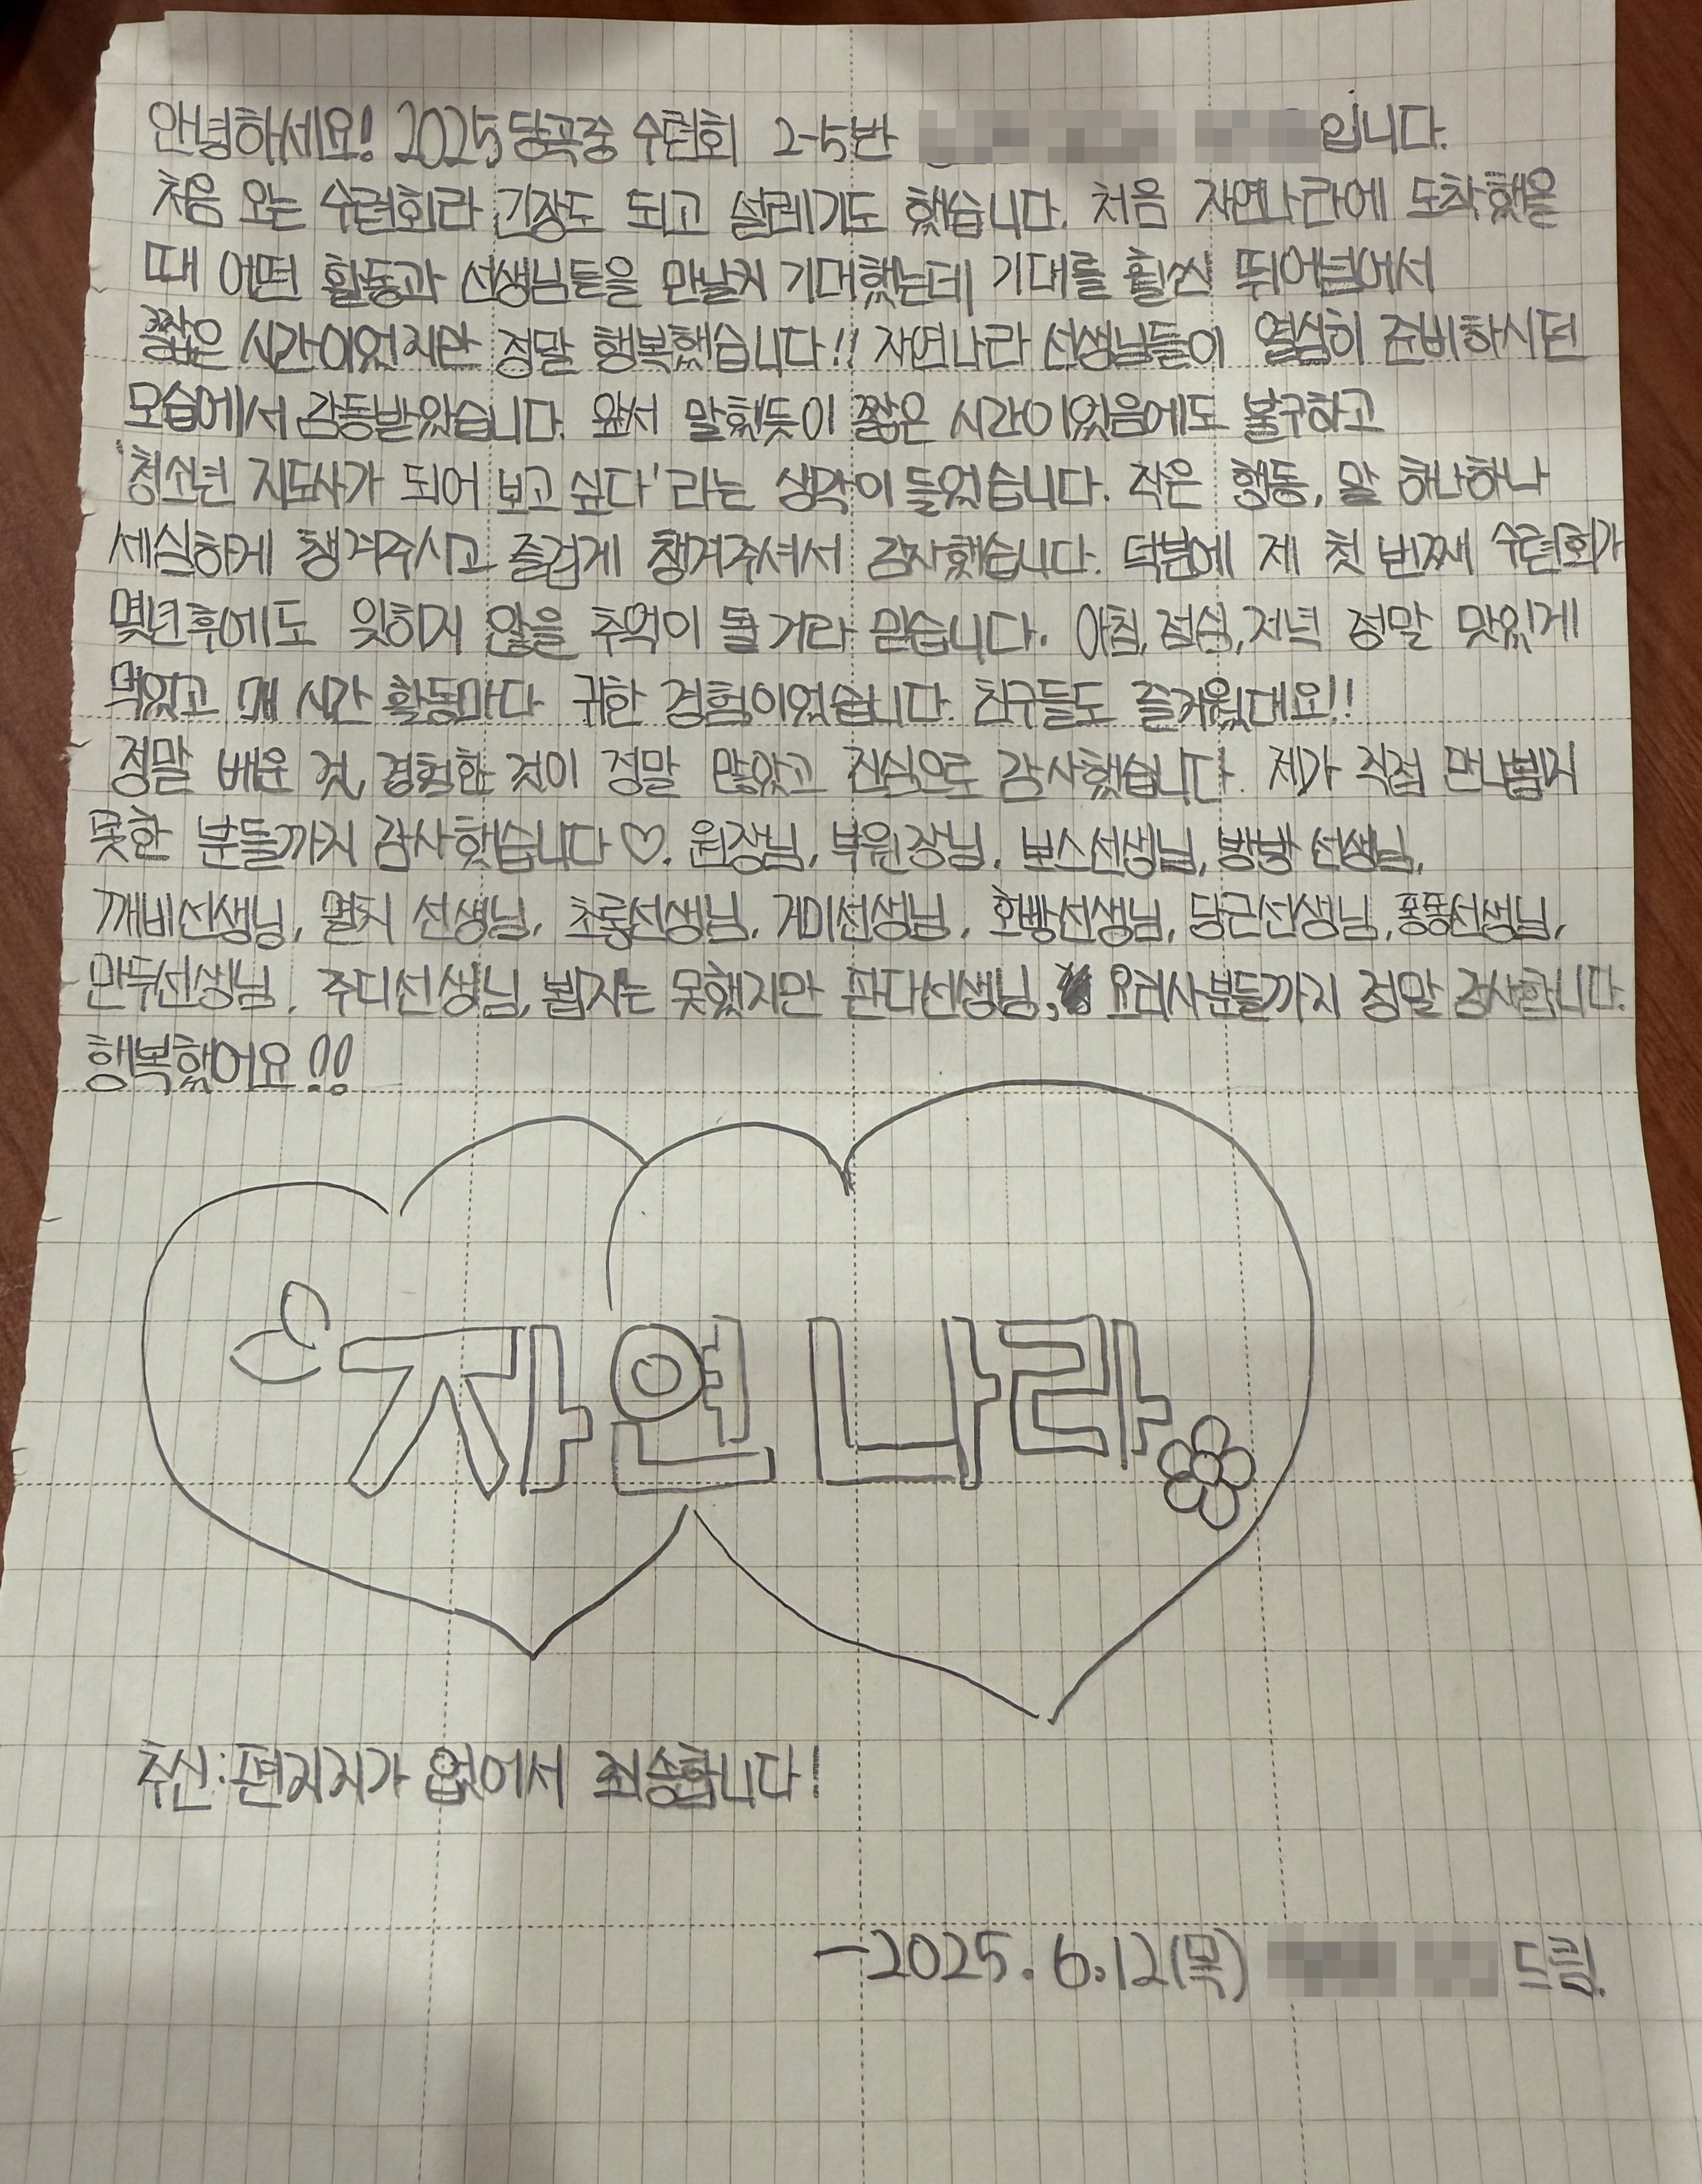 안녕하세요! 2025 당곡중 수련회 2-5반 입니다.
처음 오는 수련회라 긴장도 되고 설레기도 했습니다. 처음 자연나라에 도착했을
때 어떤 활동과 선생님들을 만날지 기대했는데 기대를 훨씬 뛰어넘어서
짧은 시간이었지만 정말 행복했습니다!! 자연나라 선생님들이 열심히 준비하시던
모습에서 감동받았습니다. 앞서 말했듯이 짧은 시간이었음에도 불구하고
'청소년 지도사가 되어 보고 싶다'라는 생각이 들었습니다. 작은 행동, 말 하나하나
세심하게 챙겨주시고 즐겁게 챙겨주셔서 감사했습니다. 덕분에 제 첫 번째 수련회가
몇년후에도 잊히지 않을 추억이 될 거라 믿습니다. 아침,점심,저녁 정말 맛있게
먹었고 매 시간 활동마다 귀한 경험이었습니다. 친구들도 즐거웠대요!!
정말 배운 것, 경험한 것이 정말 많았고 진심으로 감사했습니다. 제가 직접 만나뵙지
못한 분들까지 감사했습니다♡. 원장님, 부원장님, 보스선생님, 방방 선생님,
깨비선생님, 멸치 선생님, 초롱선생님, 개미선생님, 호빵선생님, 당근선생님, 퐁퐁선생님,
만두선생님, 주디선생님, 뵙지는 못했지만 판다선생님, 요리사분들까지 정말 감사합니다.
행복했어요!!
자연나라
추신:편지지가 없어서 죄송합니다!
-2025.6.12(목) 드림.